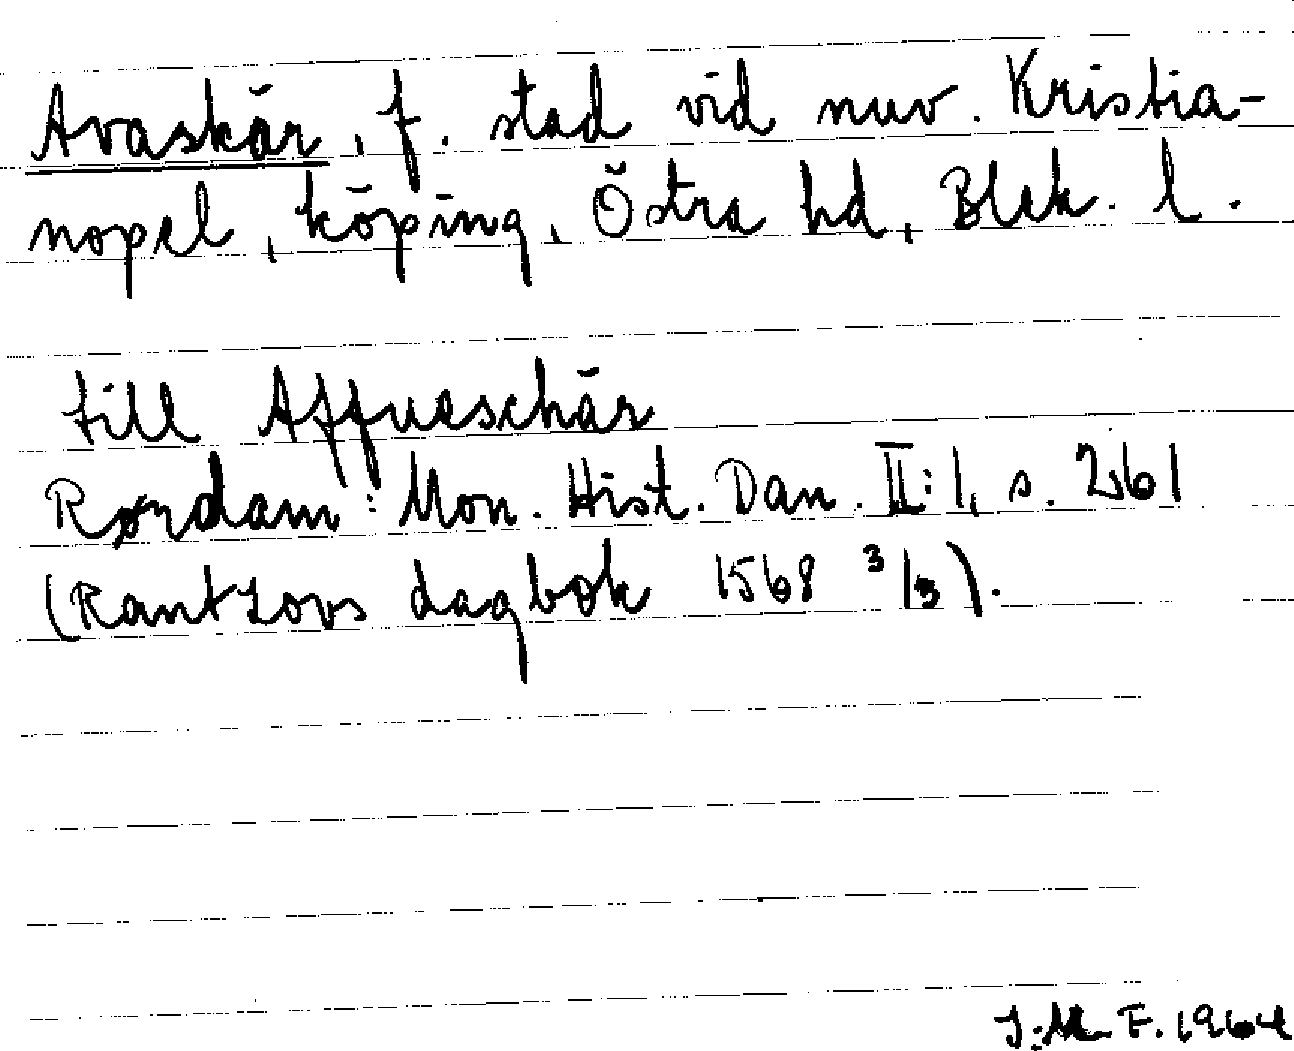 Avaskär, f. stad vid nuv. Kristia-
nopel, köping, Östra hd, Blek. l.
till Affueschär
Rørdam: Mon. Hist. Dan. II:1, s. 261
(Rantzovs dagbok 1568 3/3).
F. 1964